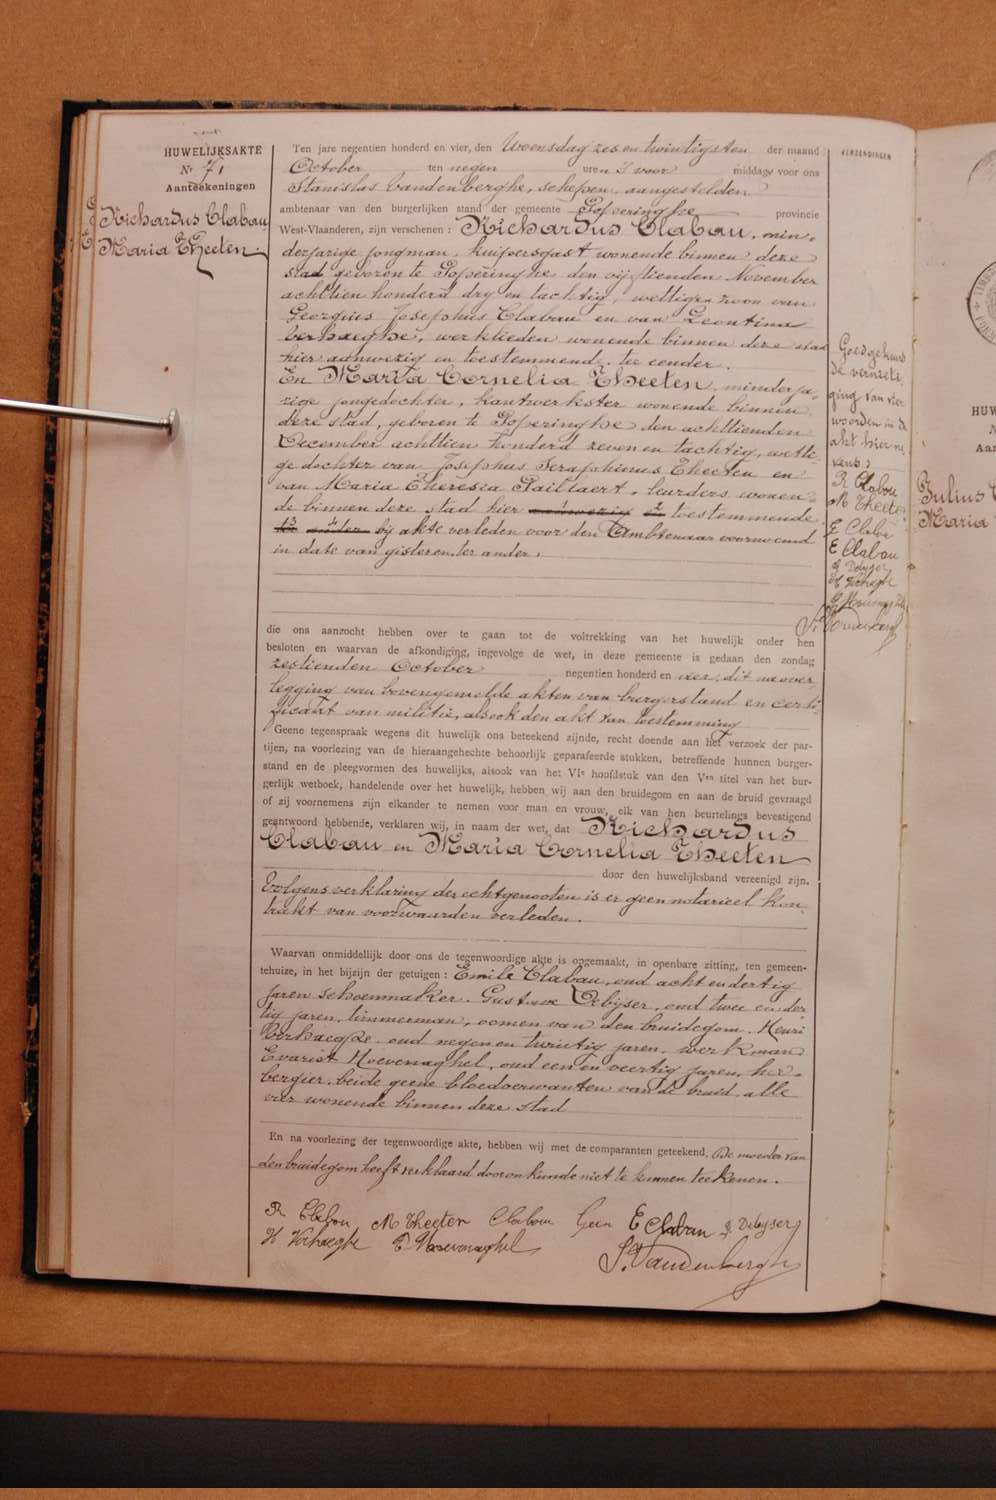 HUWELIJKSAKTE
Nr 71
Aanteekeningen
Richardus Clabau
Maria Theeten.
Ten jare negentien honderd en vier, den Woensdag zes en twintigsten der maand
October ten negen uren voor middag voor ons
Stanislas Vandenberghe, schepen, aangestelden
ambtenaar van den burgerlijken stand der gemeente Poperinghe provincie
West-Vlaanderen, zijn verschenen : Richardus Clabau, min-
derjarige jongman, kuipersgast wonende binnen deze
stad geboren te Poperinghe den vijftienden November
achttien honderd dry en tachtig, wettige zoon van
Georgius Josephus Clabau en van Leontina
Verhaeghe, werklieden wonende binnen deze stad
hier aanwezig en toestemmende, ter eender.
En Maria Cornelia Theeten, minderja-
rige jongedochter, kantwerkster wonende binnen
deze stad, geboren te Poperinghe den achttienden
December achttien honderd zeven en tachtig, wetti-
ge dochter van Josephus Seraphinus Theeten en
van Maria Theresia Paillaert, leurders wonen-
de binnen deze stad hier aanwezig en toestemmende
bij akte verleden voor den Ambtenaar voornoemd
in date van gisteren, ter ander.
die ons aanzocht hebben over te gaan tot de voltrekking van het huwelijk onder hen
besloten en waarvan de afkondiging, ingevolge de wet, in deze gemeente is gedaan den zondag
zestienden October negentien honderd en vier, dit na over-
legging van bovengemelde akten van burgerstand en certi-
ficaat van militie, alsook den akt van toestemming
Geene tegenspraak wegens dit huwelijk ons beteekend zijnde, recht doende aan het verzoek der par-
tijen, na voorlezing van de hieraangehechte behoorlijk geparafeerde stukken, betreffende hunnen burger-
stand en de pleegvormen des huwelijks, alsook van het VIe hoofdstuk van den Ven titel van het bur-
gerlijk wetboek, handelende over het huwelijk, hebben wij aan den bruidegom en aan de bruid gevraagd
of zij voornemens zijn elkander te nemen voor man en vrouw, elk van hen beurtelings bevestigend
geantwoord hebbende, verklaren wij, in naam der wet, dat Richardus
Clabau en Maria Cornelia Theeten
door den huwelijksband vereenigd zijn.
Volgens verklaring der echtgenooten is er geen notarieel kon-
trakt van voorwaarden verleden.
Waarvan onmiddellijk door ons de tegenwoordige akte is opgemaakt, in openbare zitting, ten gemeen-
tehuize, in het bijzijn der getuigen : Emile Clabau, oud acht en dertig
jaren schoenmaker. Gustave Debyser, oud twee en der-
tig jaren, timmerman, oomen van den bruidegom. Henri
Verhaeghe oud negen en twintig jaren, werkman
Evarist Hoevenaghel, oud een en veertig jaren, her-
bergier, beide geene bloedverwanten van de bruid, alle
vier wonende binnen deze stad
En na voorlezing der tegenwoordige akte, hebben wij met de comparanten geteekend. De moeder van
den bruidegom heeft verklaard door onkunde niet te kunnen teekenen.
R Clabou M Theeten Clabau E Clabau G Debyser
H Verhaeghe E Hoevenaghel S. Vandenberghe
VERZENDINGEN
Goedgekeurd
de vernieti-
ging van vier
woorden in de
akt hierne-
vens.
R Clabou
M Theeten
E Clabau
G Debyser
H Verhaeghe
S. Vandenberghe
Julius
Maria